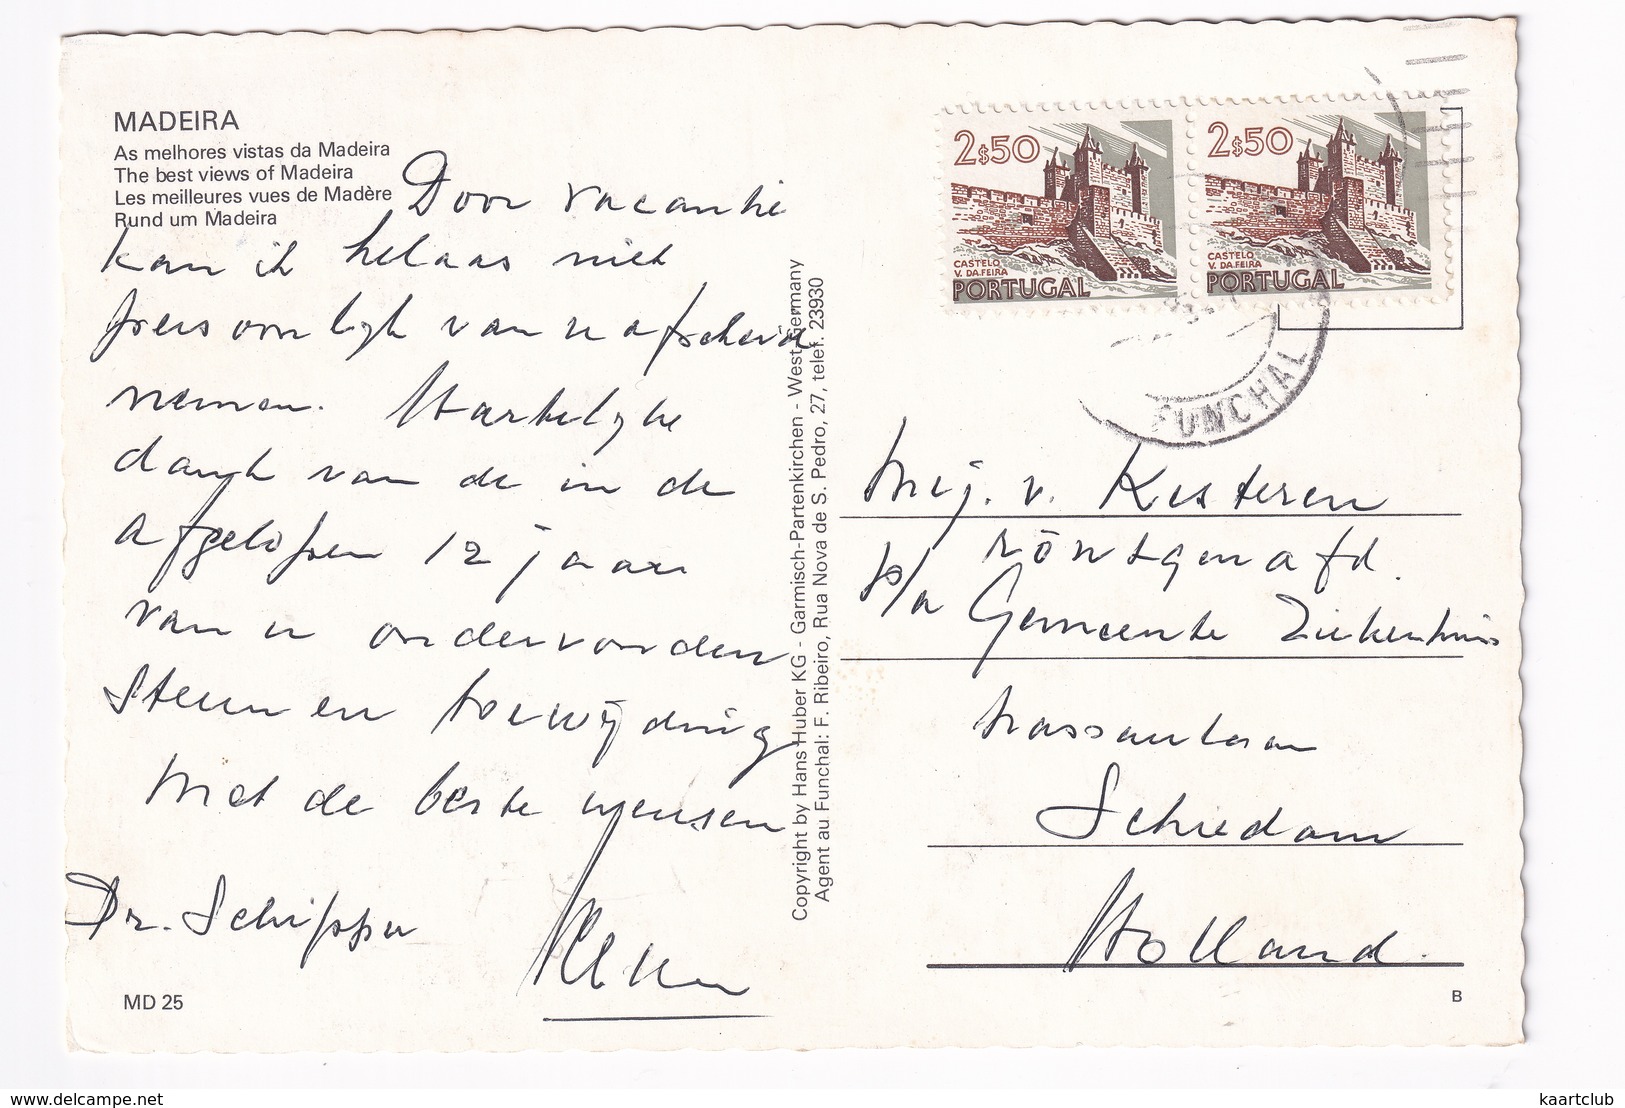 MADEIRA
As melhores vistas da Madeira
The best views of Madeira
Les meilleures vues de Madère
Rund um Madeira
Door vacantie
kan ik helaas niet
persoonlijk van u afscheid
nemen. Hartelijke
dank van de in de
afgelopen 12 jaar
van u ondervonden
steun en toewijding
Met de beste wensen
Dr. Schipper
MD 25
Copyright by Hans Huber KG - Garmisch-Partenkirchen - West Germany
Agent au Funchal: F. Ribeiro, Rua Nova de S. Pedro, 27, telef. 23930
2$50
CASTELO
V. DA.FEIRA
PORTUGAL
2$50
CASTELO
V. DA.FEIRA
PORTUGAL
FUNCHAL
Mej. v. Kesteren
röntgenafd.
p/a Gemeente Ziekenhuis
Nassaulaan
Schiedam
Holland.
B
kaartclub
www.delcampe.net